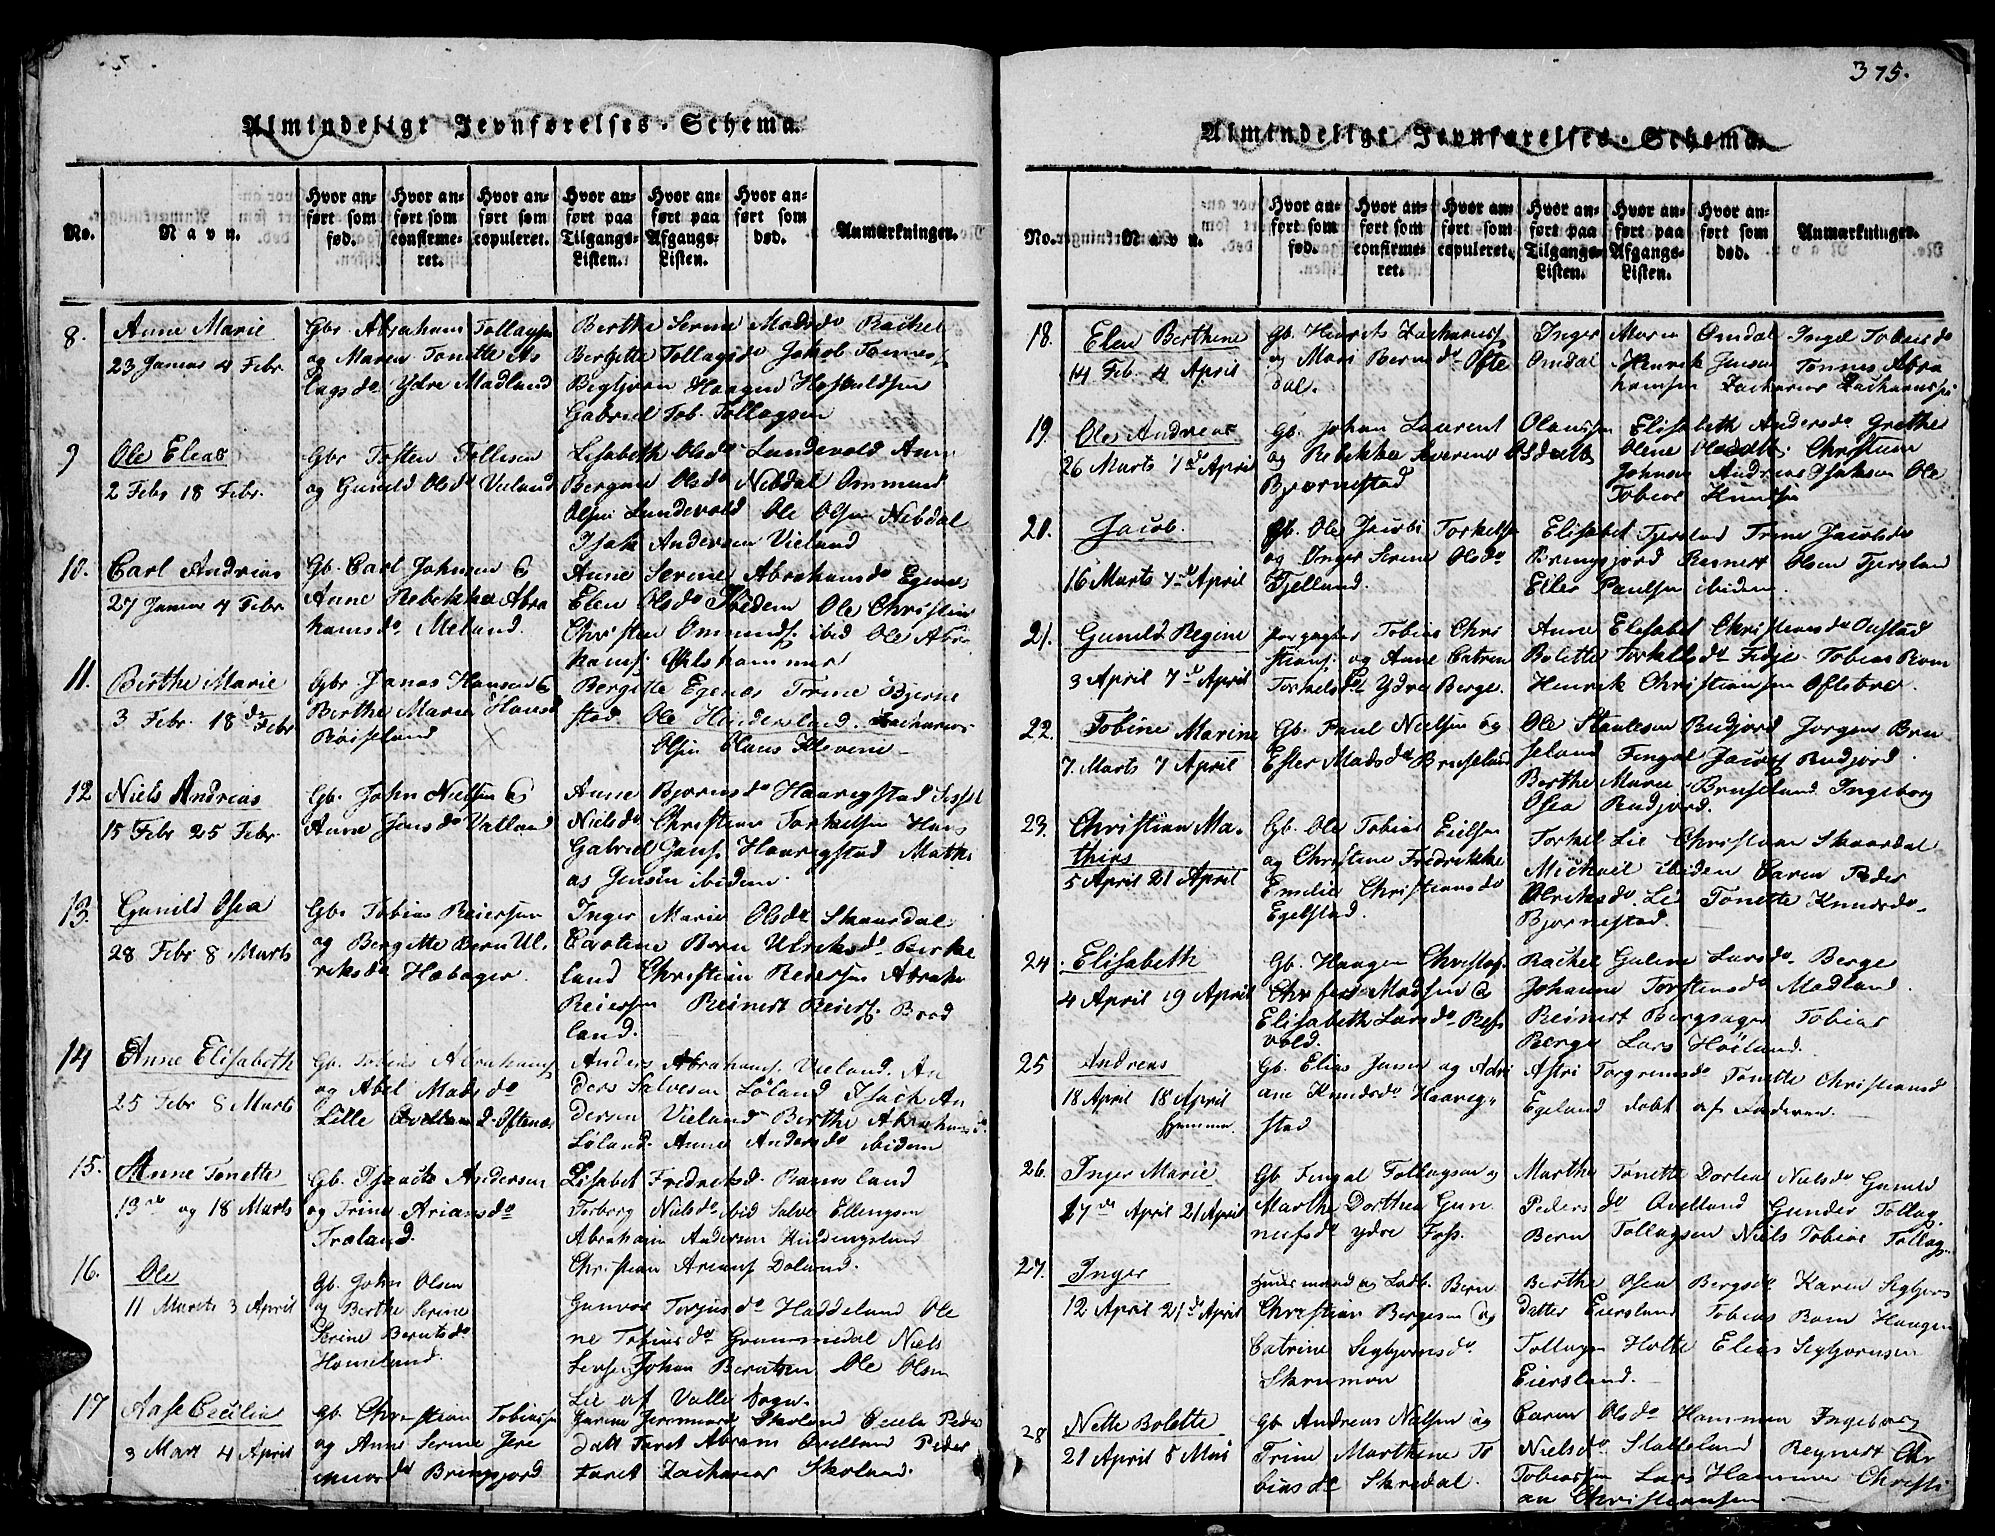 Almindeligt Jevnførelses-Schema.
No.
Navn.
Hvor anført som fød.
Hvor anført som confirmeret.
Hvor anført som copuleret.
Hvor anført paa Tilgangs-Listen.
Hvor anført paa Afgangs-Listen.
Hvor anført som død.
Anmærkninger.
8. Anne Marie
23 Januar 4 Febr
Gbr. Abraham Tollagsen
og Maren Tonette As
lagsd. Ydre Madland
Berthe Serine Madsd. Rachel
Bergitte Tollagsd. Jakob Tønnes
Haagen
Gabriel Tob. Tollagsen
9 Ole Elias
2 Febr 18 Febr.
Gbr Tosten Tollisen
og Gunild Olsd. Vieland
Lisabeth Olsd. Lundevold Ane
Bergine Olsd. Nebdal Ommund
Olsen Lundevold Ole Olsen Nebdal
Isak Andersen Vieland
10. Carl Andrias
27 Januar 4 Febr
Gb. Carl Johnsen &
Anne Rebekka Abra
hamsd. Meland.
Anne Serine Abrahamsd. Egenes
Elen Olsd. Ibidem Ole Christian
Christen Ommunds. ibid Ole Abra
hams.
11. Birthe Marie
3 Febr. 18d Febr
Gbr. Jonas Hansen &
Berthe Marie Hansd
Røisland
Bergitte Egenes Trine Bjørne
stad. Ole Hindersland. Zacharias
Olsen Olaus Klevene
12 Niels Andreas
15 Febr 25 Febr
Gb. John Nielsen &
Anne Jensd. Vatland
Anne Bjørnsd. Haarigstad
Nielsd. Christian Torkelsen Hans
Gabriel Jens. Haarigstad Mathi
as Jensen ibidem.
13. Gunild Osea
28 Febr 8 Marts
Gb. Tobias Reiersen
og Bergitte Bern Ul.
riksd. Hæbager.
Inger Marie Olsd. Skaardal
Caroline Bern Ulriksd. Birke
land Christian Reiersen Abraha
Reiersen Reinert Reiers. Brod
land.
14 Anne Elisabeth
25 Febr 8 Marts
Gb. Tobias Abrahams
og Abel Madsd.
Lille Avelland Oftenæs
Anders Abrahams. Vieland. An
ders Salvesen Løland Isach An
dersen Vieland Berthe Abrahamsd.
Løland. Anne Andersd. ibidem
15. Anne Tonette
13de og 18 Marts
Gb. Isaach Andersen
og Trine Ariansd.
Træland.
Lisabet Fredriksd. Ramsland
Torborg Nielsd. ibid Salve Ellingsen
Abraham Andersen
Christian Arians Doland.
16. Ole
11 Marts 3 April
Gb. John Olsen
og Berthe Serine
Serine Berntsd.
Homeland.
Gunvor Torjusd. Haddeland Ole
ne Tobiasd. Grummedal Niels
Johan Berntsen Ole Olsen
Lie af Valle Sogn.
17 Aase Cecilia
3 Mart 4 April
Gb. Christian Tobiassen
og Anne Serine Jere
miasd. Bringsjord
Skoland Cecilia Peders
datt Faret Abram Avelland Peder
Faret Zacharias Skoland.
375.
Almindeligt Jevnførelses-Schema.
No.
Navn.
Hvor anført som fød.
Hvor anført som confirmeret.
Hvor anført som copuleret.
Hvor anført paa Tilgangs-Listen.
Hvor anført paa Afgangs-Listen.
Hvor anført som død.
Anmærkninger.
18. Elen Berthine
14 Feb. 4 April
Gb. Henrik Zacharias
og Mari Berntsd. Ofte
dal.
Inger Maria Omdal Inger Tobiasd.
Omdal Henrik Jensen Tønnes Abra
hamsen Zacharias Zachariassen
19. Ole Andreas
26 Marts 7d April
Gb. Johan Laurent Olaussen
og Rebekka Severine Olsdatt.
Bjørnestad
Elisabeth Andersd. Grethe
Olene Olsdatt. Christian
Johnsen Andreas Isaksen Ole
Tobias Knudsen
20. Jacob.
16 Marts 7d April
Gb. Ole Jacobs Torkelsen
og Inger Serine Olsd.
Fjelland.
Elisabet Fjersland Trine Jacobsd.
Bringsjord Reinert Olsen Fjersland
Eiler Paulsen ibidem.
21. Gunild Regine
3 April 7d April
Forpagter Tobias Chri
stians. og Anne Catrine
Torkelsd. Ydre Berge.
Anne Elisabet Christiansd. Opstad
Bolette Torkelsd. Fidje. Tobias Rom
Henrik Christiansen Oftebro.
22. Tobine Marine
7. Marts 7 April
Gb. Paul Nielsen og
Ester Madsd. Bruseland
Ole Staalesen Rudjord Jørgen Bru
seland Fingal Jacobs. Rudjord.
Berthe Marie Bruseland Ingeborg
Osea Rudjord.
23. Christian Ma-
thias
5 April 21 April
Gb. Ole Tobias Eielsen
og Christine Fredrikke
Emilie Christiansd.
Egelstad.
Torkel Lie Christian Skaardal
Michael ibidem Caren Peder
Ulriksd. Lie Tonette Knudsd.
Bjørnestad.
24. Elisabeth
4 April 19 April
Gb. Haagen Christop.
Madsen &
Elisabeth Larsd. Refs
vold.
Rachel Galene Larsd. Berge
Johanne Torstensd. Madland.
Reinert Bergsager Tobias
Berge Lars Høiland.
25 Andreas
18 April 18 April
hjemme.
Gb. Elias Jansen og Adri
ane Knudsd. Haarig-
stad
Astri Torgrimsd. Tonette Christiansd
Egeland døbt af Faderen.
26. Inger Marie
17de April 21 April
Gb Fingal Tollagsen og
Marthe Dorthea Gun
neufsd. ydre Foss.
Marthe Tonette Dorlea Nielsd. Gunild
Pedersd. Avelland Gunder Tollag.
Bern Tollagsen Niels Tobias Tollags
27. Inger
12 April 21d April
Huusmand og Lodb. Bern
Christian Bergesen og
Catrine Segbjørnsd.
Skrumoen
Berthe Osea Bergsd. Karen Segbjørs
datter Eiersland Tobias Rom Haagen
Tollagsen Holte Elias Segbjørnsen
Eiersland.
28 Nette Bolette
21 April 8 Mai
Gb Andreas Nielsen og
Trine Marthine To
biasd. Skredal.
Caren Olsd. Hommen Ingeborg
Nielsd. Stalleland Reynert Chr
Tobiassen Lars Hammer Christi
an Christiansen